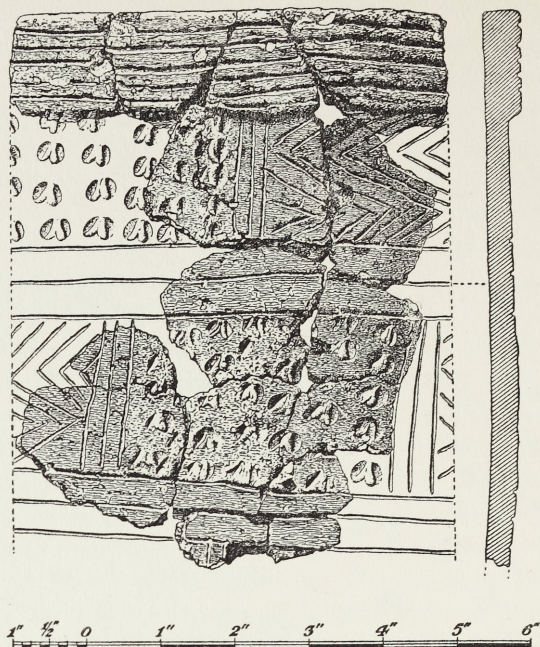 1" ½" 0 1" 2" 3" 4" 5" 6"